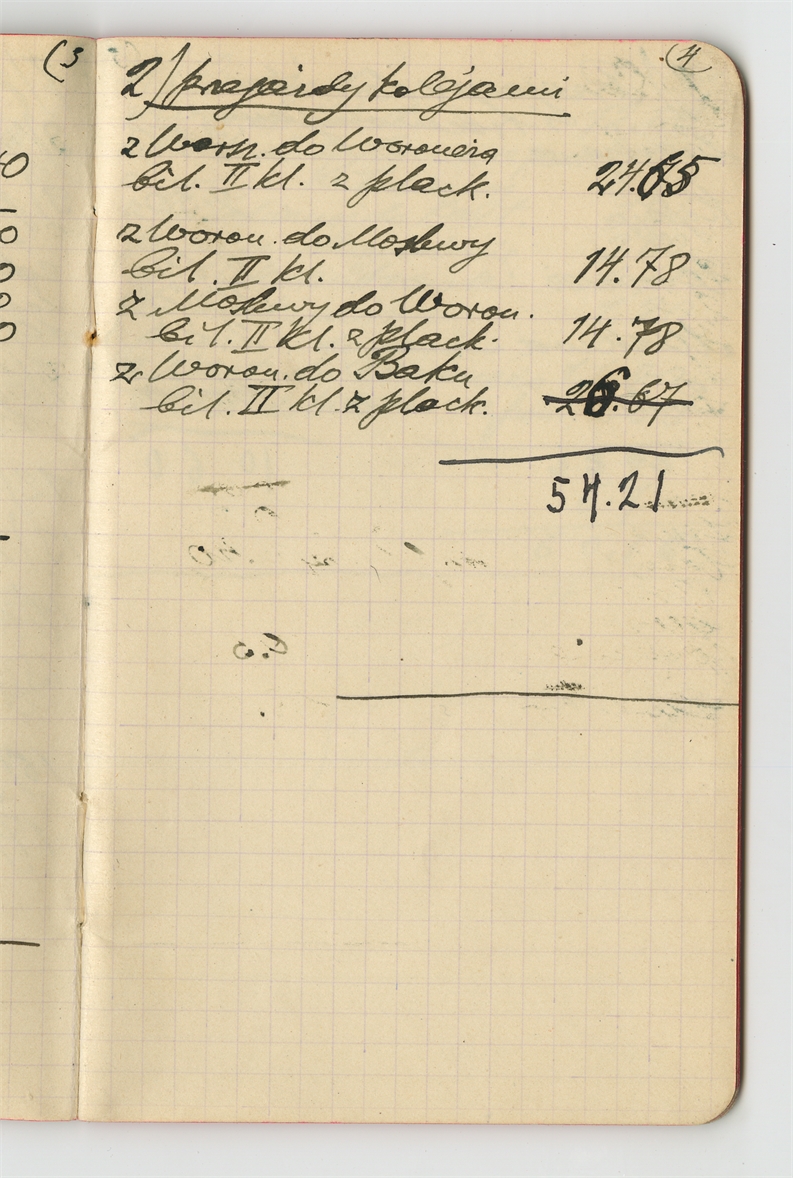 (3
(4
2) przejazdy kolejami
z Warsz. do Woroneża
bil. II kl. z plack. 24.65
z Woron. do Moskwy
bil. II kl. 14.78
z Moskwy do Woron.
bil. II kl. z plack. 14.78
z Woron. do Baku
bil. II kl. z plack. 26.67
54.21